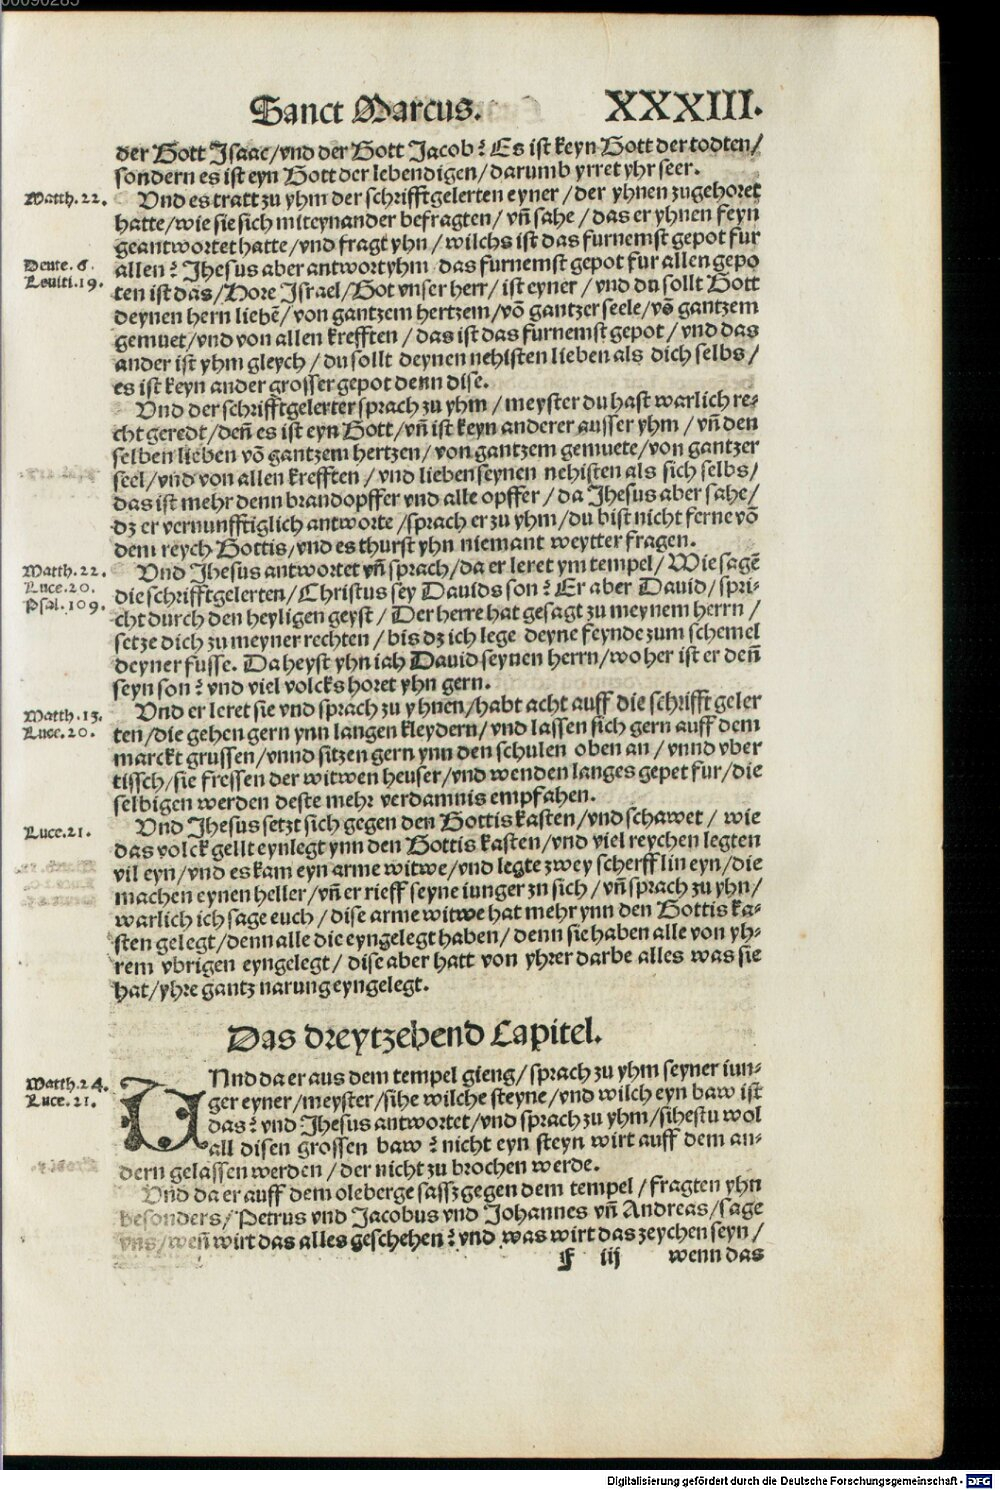 Sanct Marcus. XXXIII.
der Gott Isaac/vnd der Gott Jacob? Es ist keyn Gott der todten/
sondern es ist eyn Gott der lebendigen/darumb yrret yhr seer.
Matth.22.
Vnd es tratt zu yhm der schrifftgelerten eyner/der yhnen zugehoret
hatte/wie sie sich miteynander befragten/vñ sahe/das er yhnen feyn
geantwortet hatte/vnd fragt yhn/wilchs ist das furnemst gepot fur
Deute.6.
Leuiti.19.
allen? Jhesus aber antwort yhm das furnemst gepot fur allen gepo
ten ist das/Hore Israel/Got vnser herr/ist eyner/vnd du sollt Gott
deynen hern liebẽ/von gantzem hertzem/võ gantzer seele/võ gantzem
gemuet/vnd von allen krefften/das ist das furnemst gepot/vnd das
ander ist yhm gleych/du sollt deynen nehisten lieben als dich selbs/
es ist keyn ander grosser gepot denn dise.
Vnd der schrifftgelerter sprach zu yhm/meyster du hast warlich re-
cht geredt/deñ es ist eyn Gott/vñ ist keyn anderer ausser yhm/vñ den
selben lieben võ gantzem hertzen/von gantzem gemuete/von gantzer
seel/vnd von allen krefften/vnd lieben seynen nehisten als sich selbs/
das ist mehr denn brandopffer vnd alle opffer/da Jhesus aber sahe/
dz er vernunfftiglich antworte/sprach er zu yhm/du bist nicht ferne võ
dem reych Gottis/vnd es thurst yhn niemant weytter fragen.
Matth.22.
Luce.20.
Psal.109.
Vnd Jhesus antwortet vñ sprach/da er leret ym tempel/Wie sagẽ
die schrifftgelerten/Christus sey Dauids son? Er aber Dauid/spri-
cht durch den heyligen geyst/Der herre hat gesagt zu meynem herrn/
setze dich zu meyner rechten/bis dz ich lege deyne feynde zum schemel
deyner fusse. Da heyst yhn iah Dauid seynen herrn/wo her ist er deñ
seyn son? vnd viel volcks horet yhn gern.
Matth.13.
Luce.20.
Vnd er leret sie vnd sprach zu yhnen/habt acht auff die schrifft geler
ten/die gehen gern ynn langen kleydern/vnd lassen sich gern auff dem
marckt grussen/vnnd sitzen gern ynn den schulen oben an/vnnd vber
tissch/sie fressen der witwen heuser/vnd wenden langes gepet fur/die
selbigen werden deste mehr verdamnis empfahen.
Luce.21.
Vnd Jhesus setzt sich gegen den Gottis kasten/vnd schawet/wie
das volck gellt eynlegt ynn den Gottis kasten/vnd viel reychen legten
vil eyn/vnd es kam eyn arme witwe/vnd legte zwey scherfflin eyn/die
machen eynen heller/vñ er rieff seyne iunger zu sich/vñ sprach zu yhn/
warlich ich sage euch/dise arme witwe hat mehr ynn den Gottis ka-
sten gelegt/denn alle die eyngelegt haben/denn sie haben alle von yh-
rem vbrigen eyngelegt/dise aber hatt von yhrer darbe alles was sie
hat/yhre gantz narung eyngelegt.
Das dreytzehend Capitel.
Matth.24.
Luce.21.
VNnd da er aus dem tempel gieng/sprach zu yhm seyner iun-
ger eyner/meyster/sihe wilche steyne/vnd wilch eyn baw ist
das? vnd Jhesus antwortet/vnd sprach zu yhm/sihestu wol
all disen grossen baw? nicht eyn steyn wirt auff dem an-
dern gelassen werden/der nicht zu brochen werde.
Vnd da er auff dem oleberge sassz gegen dem tempel/fragten yhn
besonders/Petrus vnd Jacobus vnd Johannes vñ Andreas/sage
vns/weñ wirt das alles geschehen? vnd was wirt das zeychen seyn/
F iij wenn das
Digitalisierung gefördert durch die Deutsche Forschungsgemeinschaft - DFG